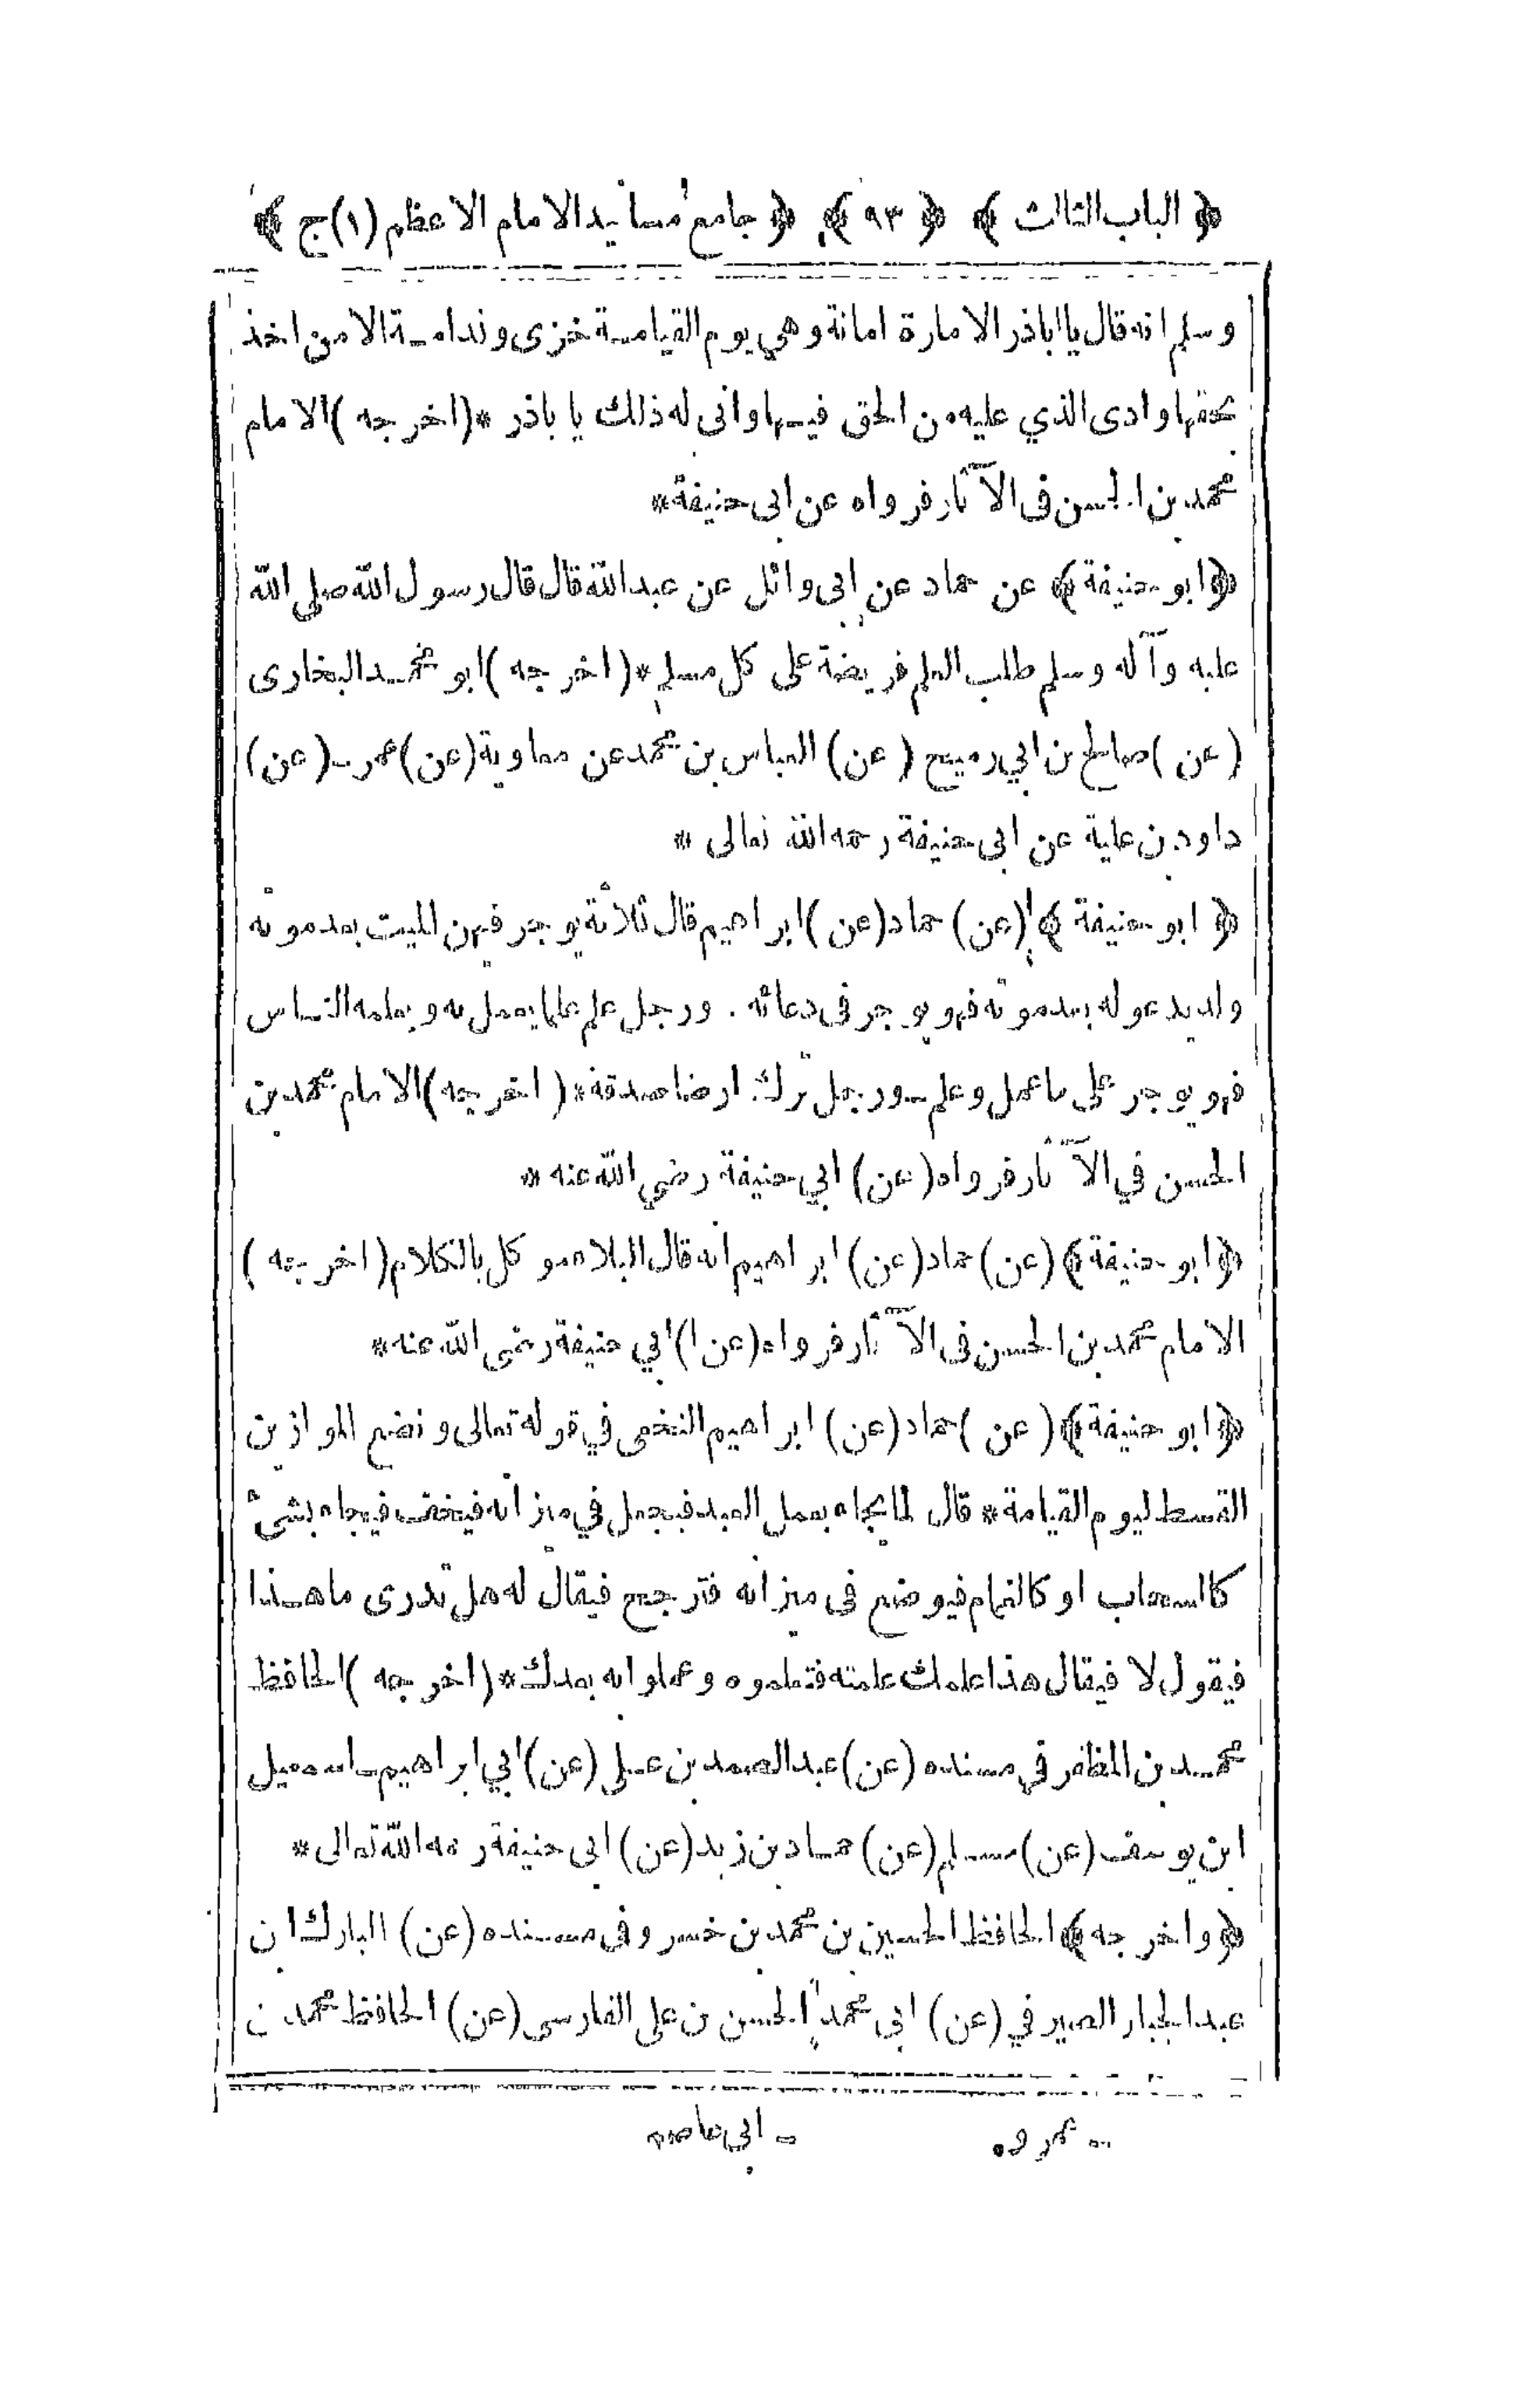 ﴿ الباب الثالث ﴾ ﴿ ٩٣ ﴾ ﴿ جامع مسانيد الامام الاعظم (١) ج ﴾
وسلم انه قال يا اباذر الامارة امانة وهي يوم القيامة خزى وندامة الا من اخذ
بحقها وادى الذي عليه من الحق فيها وانى له ذلك يا باذر *(اخرجه) الامام
محمد بن الحسن فى الآثار فرواه عن ابى حنيفة*
﴿ابو حنيفة﴾ عن حماد عن ابى وائل عن عبدالله قال قال رسول الله صلى الله
عليه وآله وسلم طلب العلم فريضة على كل مسلم *(اخرجه) ابو محمد البخارى
(عن) صالح بن ابي رميح (عن) العباس بن محمد عن معاوية (عن) عمر ـ (عن)
داود بن علية عن ابى حنيفة رحمه الله تعالى *
﴿ ابو حنيفة ﴾ (عن) حماد (عن) ابراهيم قال ثلاثة يوجر فيهن الميت بعد موته
ولد يدعو له بعد موته فهو يوجر فى دعائه . ورجل علم علما يعمل به ويعلمه الناس
فهو يوجر على ما عمل وعلم ـ ورجل ترك ارضا صدقة *(اخرجه) الامام محمد بن
الحسن في الآثار فرواه (عن) ابي حنيفة رضي الله عنه *
﴿ابو حنيفة﴾ (عن) حماد (عن) ابراهيم انه قال البلاء موكل بالكلام (اخرجه)
الامام محمد بن الحسن فى الآثار فرواه (عن ا) ابي حنيفة رضى الله عنه *
﴿ابو حنيفة﴾ (عن) حماد (عن) ابراهيم النخعى في قوله تعالى ونضع الموازين
القسط ليوم القيامة * قال لما يجاء بعمل العبد فيجعل في ميزانه فيخف فيجاء بشئ
كالسحاب او كالغمام فيوضع فى ميزانه فترجح فيقال له هل تدرى ما هذا
فيقول لا فيقال هذا علمك علمته فتعلموه وعملوا به بعدك *(اخرجه) الحافظ
محمد بن المظفر في مسنده (عن) عبد الصمد بن على (عن) ابي ابراهيم ـ اسمعيل
ابن يوسف (عن) مسلم (عن) حماد بن زيد (عن) ابى حنيفة رحمه الله تعالى *
﴿واخرجه﴾ الحافظ الحسين بن محمد بن خسرو فى مسنده (عن) المبارك بن
عبد الجبار الصيرفي (عن) ابى محمد الحسن بن على الفارسى (عن) الحافظ محمد بن
ـ عمروه ـ ابى عاصم